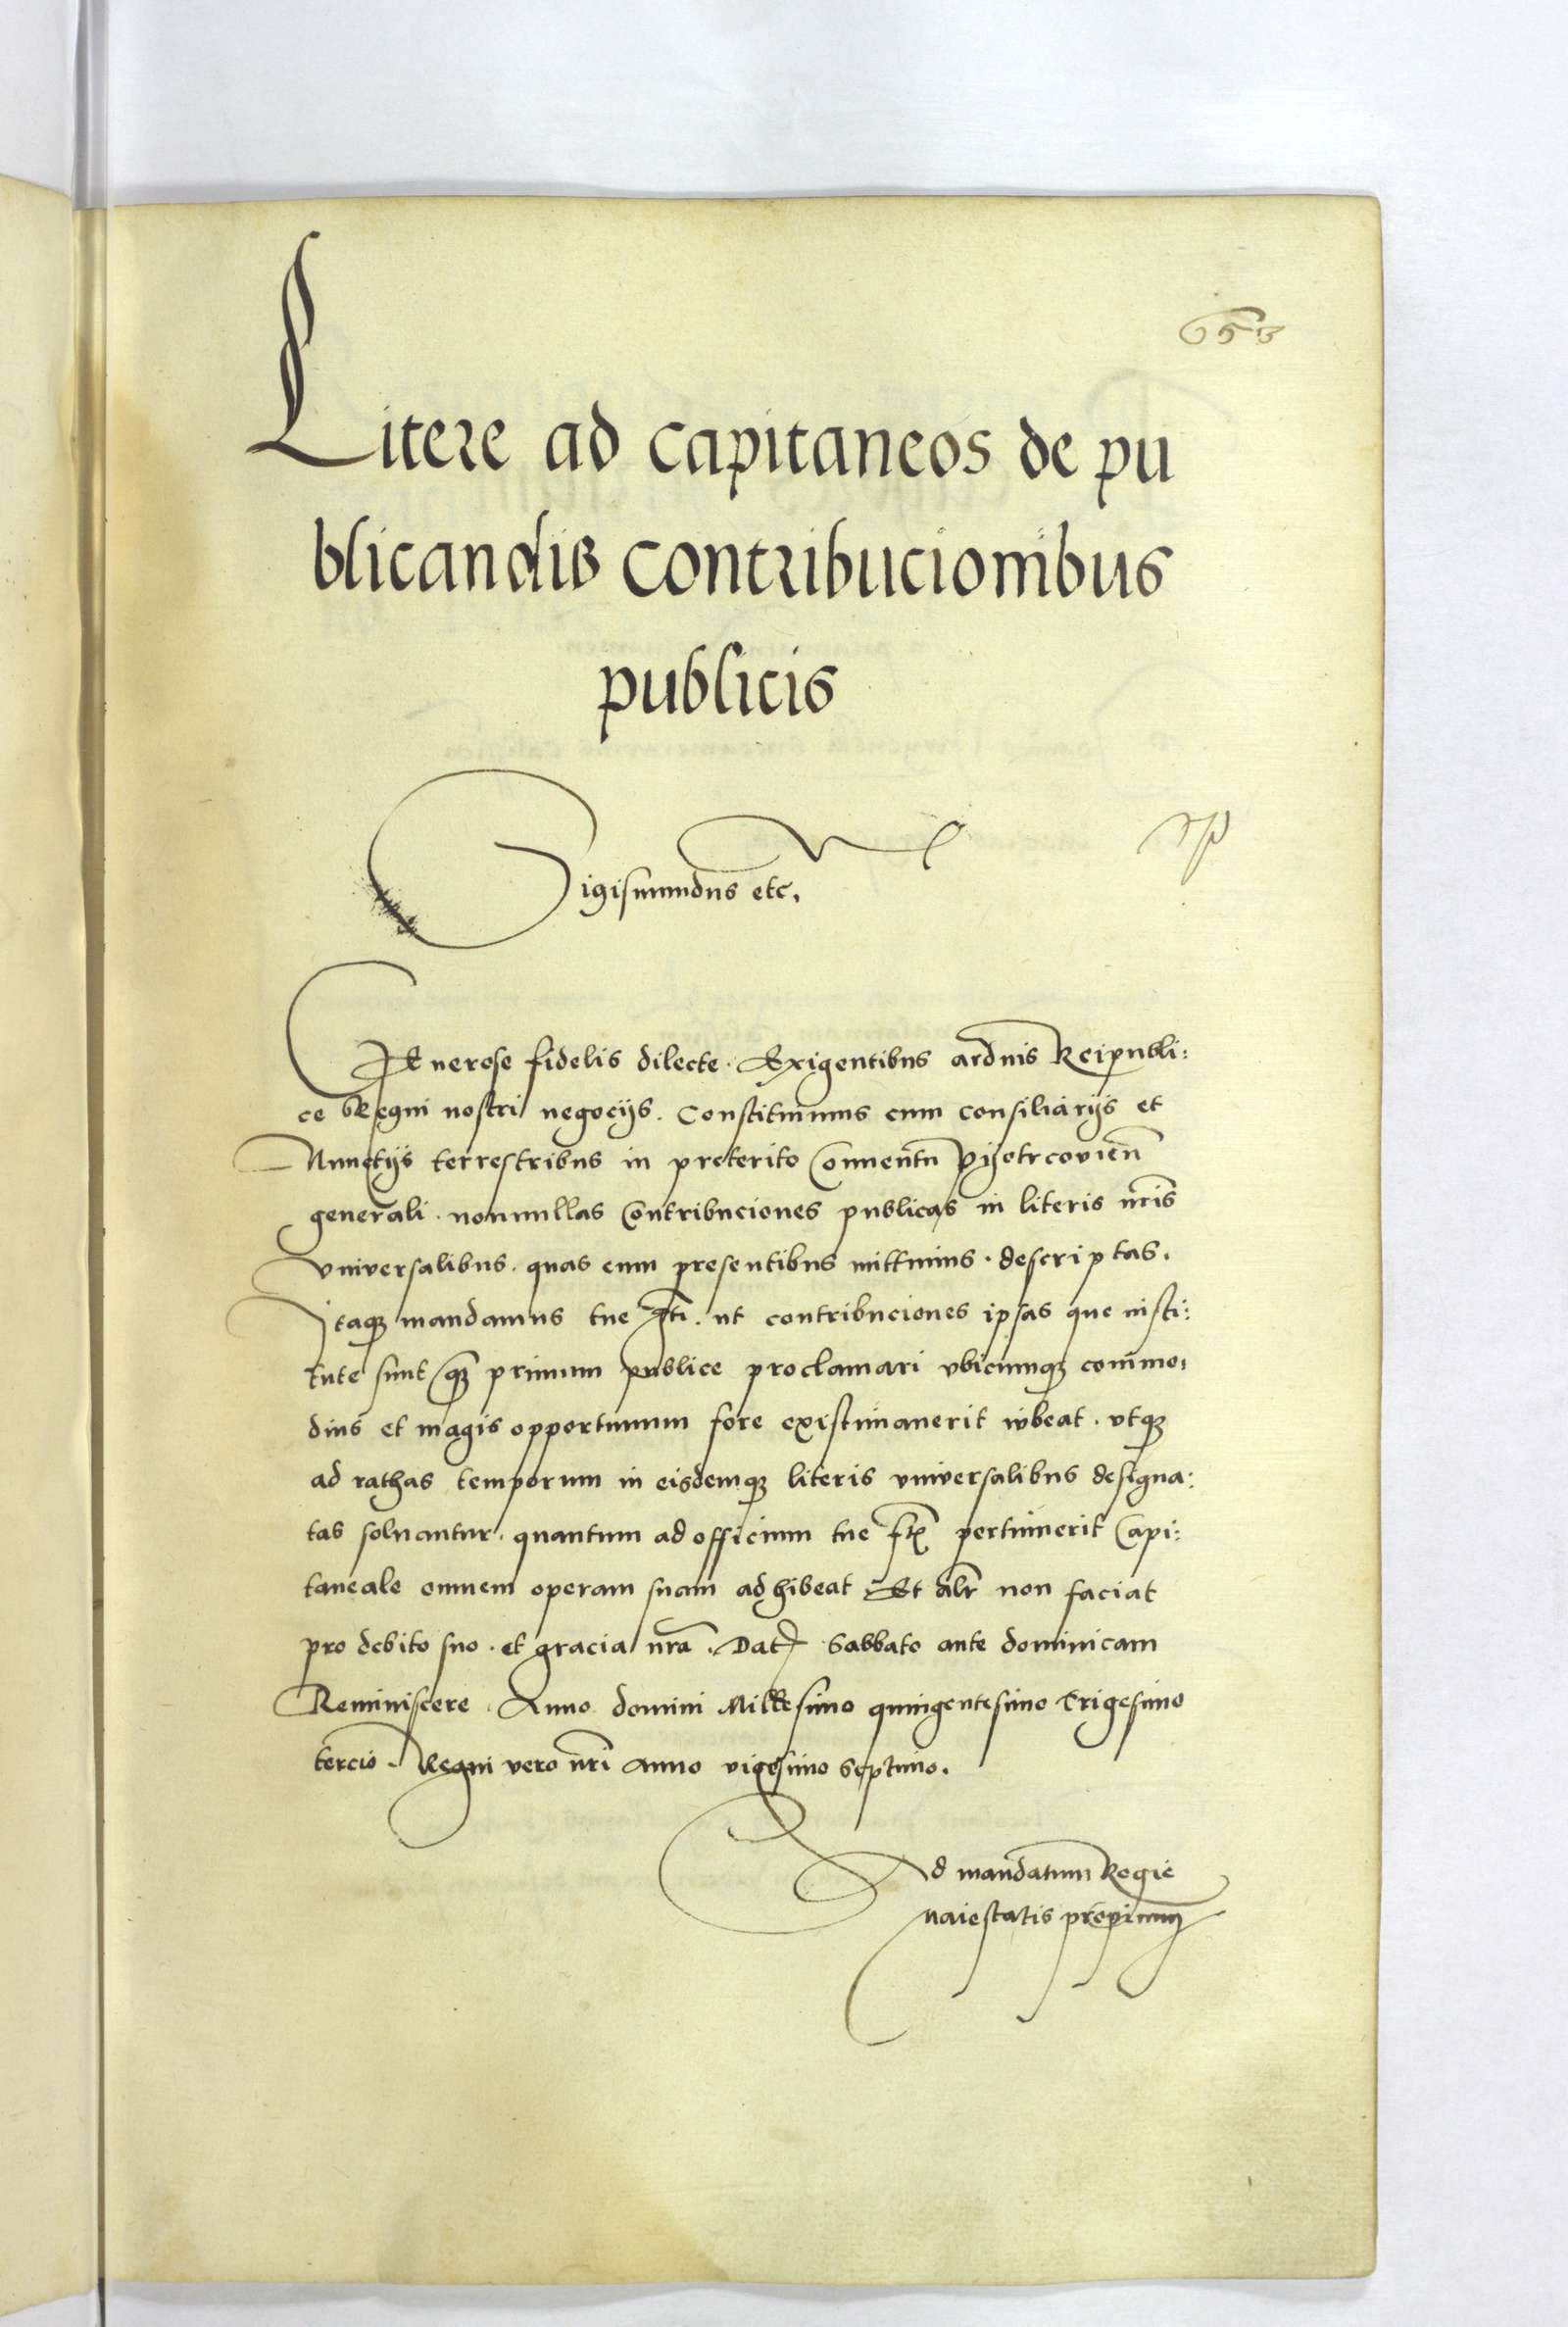 653
Litere ad capitaneos de pu
blicandis contribucionibus
publicis
Sigismundus etc.
Generose fidelis dilecte. Exigentibus arduis Reipubli:
ce Regni nostri negocijs. Constituimus cum consiliarijs et
Nunctijs terrestribus in preterito Conuentu Pijotrcouien̄
generali. nonnullas Contribuciones publicas in literis nr̄is
vniuersalibus. quas cum presentibus mittimus. descriptas.
Itaqȝ mandamus tue fti. ut contribuciones ipsas que insti:
tute sunt qȝ primum publice proclamari vbicumqȝ commo:
dius et magis opportunum fore existimauerit iubeat. vtqȝ
ad rathas temporum in eisdemqȝ literis vniuersalibus designa:
tas soluantur. quantum ad officium tue ftꝭ pertinuerit Capi:
taneale omnem operam suam adhibeat Et alr̄ non faciat
pro debito suo. et gracia nrā. Datꝭ Sabbato ante dominicam
Reminiscere. Anno domini Millesimo quingentesimo trigesimo
tercio. Regni vero nr̄i Anno vigesimo Septimo.
Ad mandatum Regie
Maiestatis